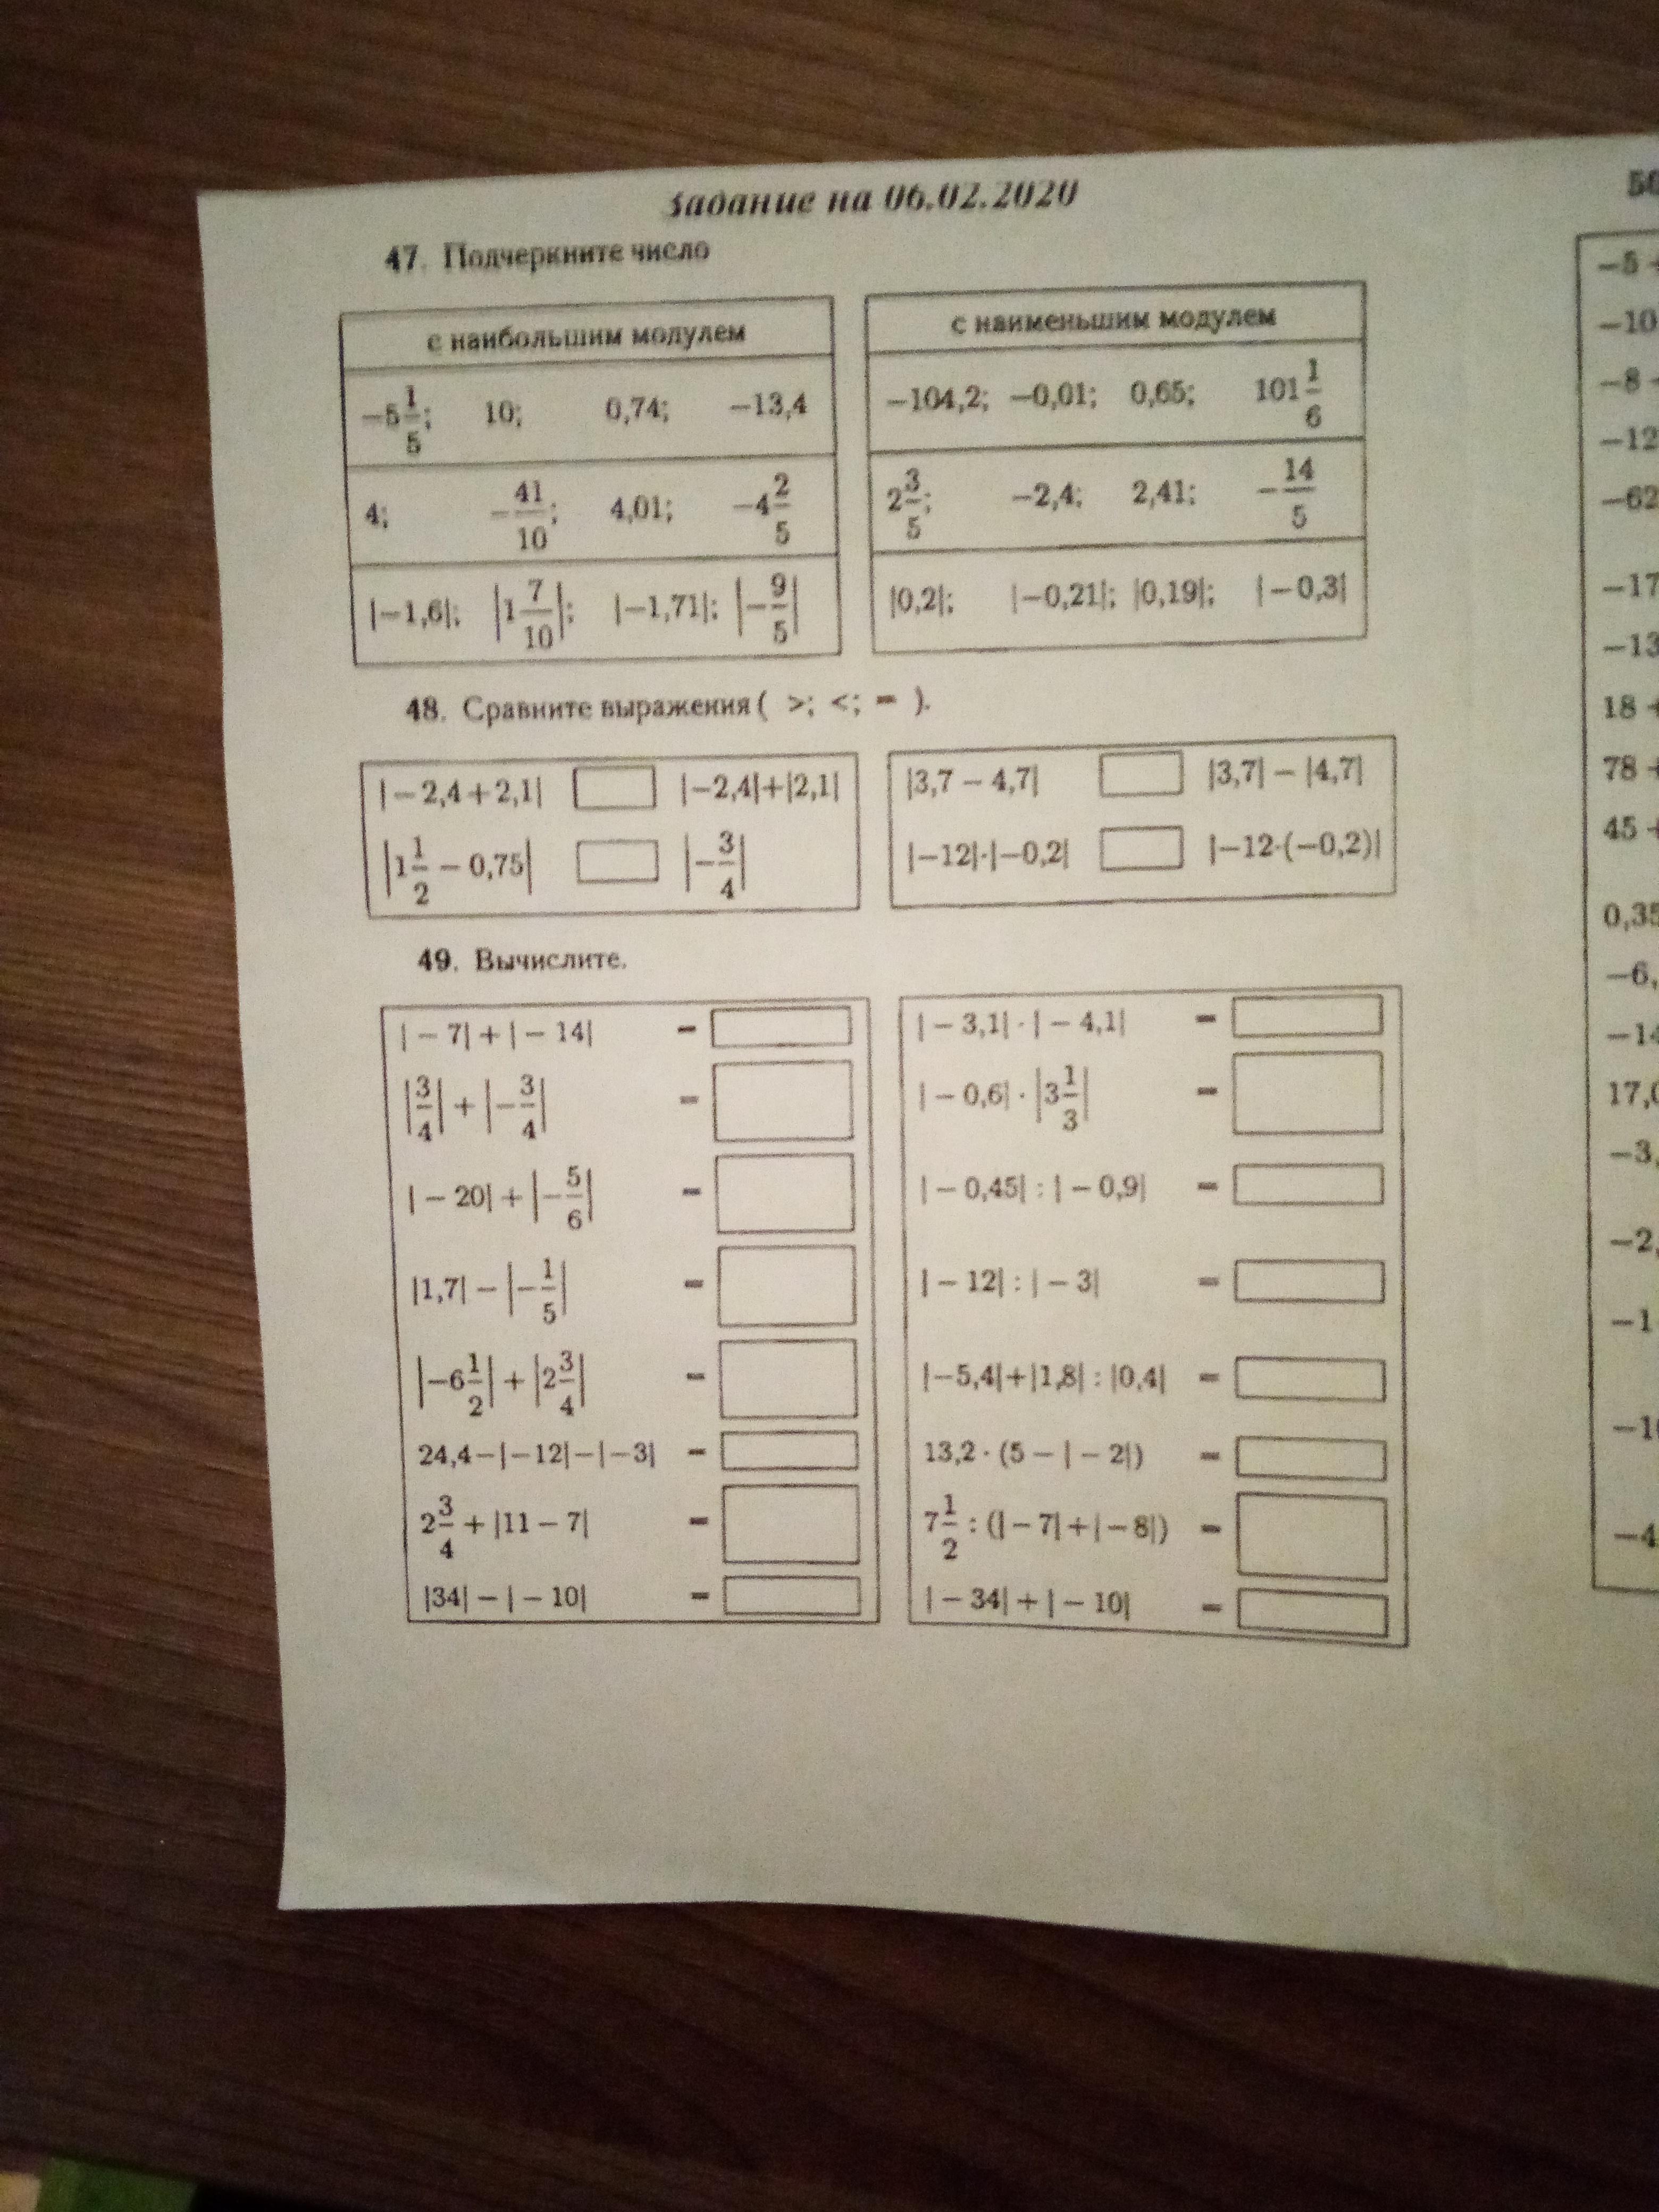 Задание на 06.02.2020
47. Подчеркните число
с наибольшим модулем
−5 1/5; 10; 0,74; −13,4
4; −41/10; 4,01; −4 2/5
|−1,6|; |1 7/10|; |−1,71|; |−9/5|
с наименьшим модулем
−104,2; −0,01; 0,65; 101 1/6
2 3/5; −2,4; 2,41; −14/5
|0,2|; |−0,21|; |0,19|; |−0,3|
48. Сравните выражения ( >; <; = ).
|−2,4+2,1| |−2,4|+|2,1|
|1 1/2 − 0,75| |−3/4|
|3,7 − 4,7| |3,7| − |4,7|
|−12|·|−0,2| |−12·(−0,2)|
49. Вычислите.
|−7| + |−14| =
|3/4| + |−3/4| =
|−20| + |−5/6| =
|1,7| − |−1/5| =
|−6 1/2| + |2 3/4| =
24,4−|−12|−|−3| =
2 3/4 + |11 − 7| =
|34| − |−10| =
|−3,1| · |−4,1| =
|−0,6| · |3 1/3| =
|−0,45| : |−0,9| =
|−12| : |−3| =
|−5,4|+|1,8| : |0,4| =
13,2 · (5 − |−2|) =
7 1/2 : (|−7|+|−8|) =
|−34| + |−10| =
−5 +
−10
−8
−12
−62
−17
−13
18 +
78 +
45 +
0,35
−6,
−14
17,0
−3,
−2,
−1
−10
−4